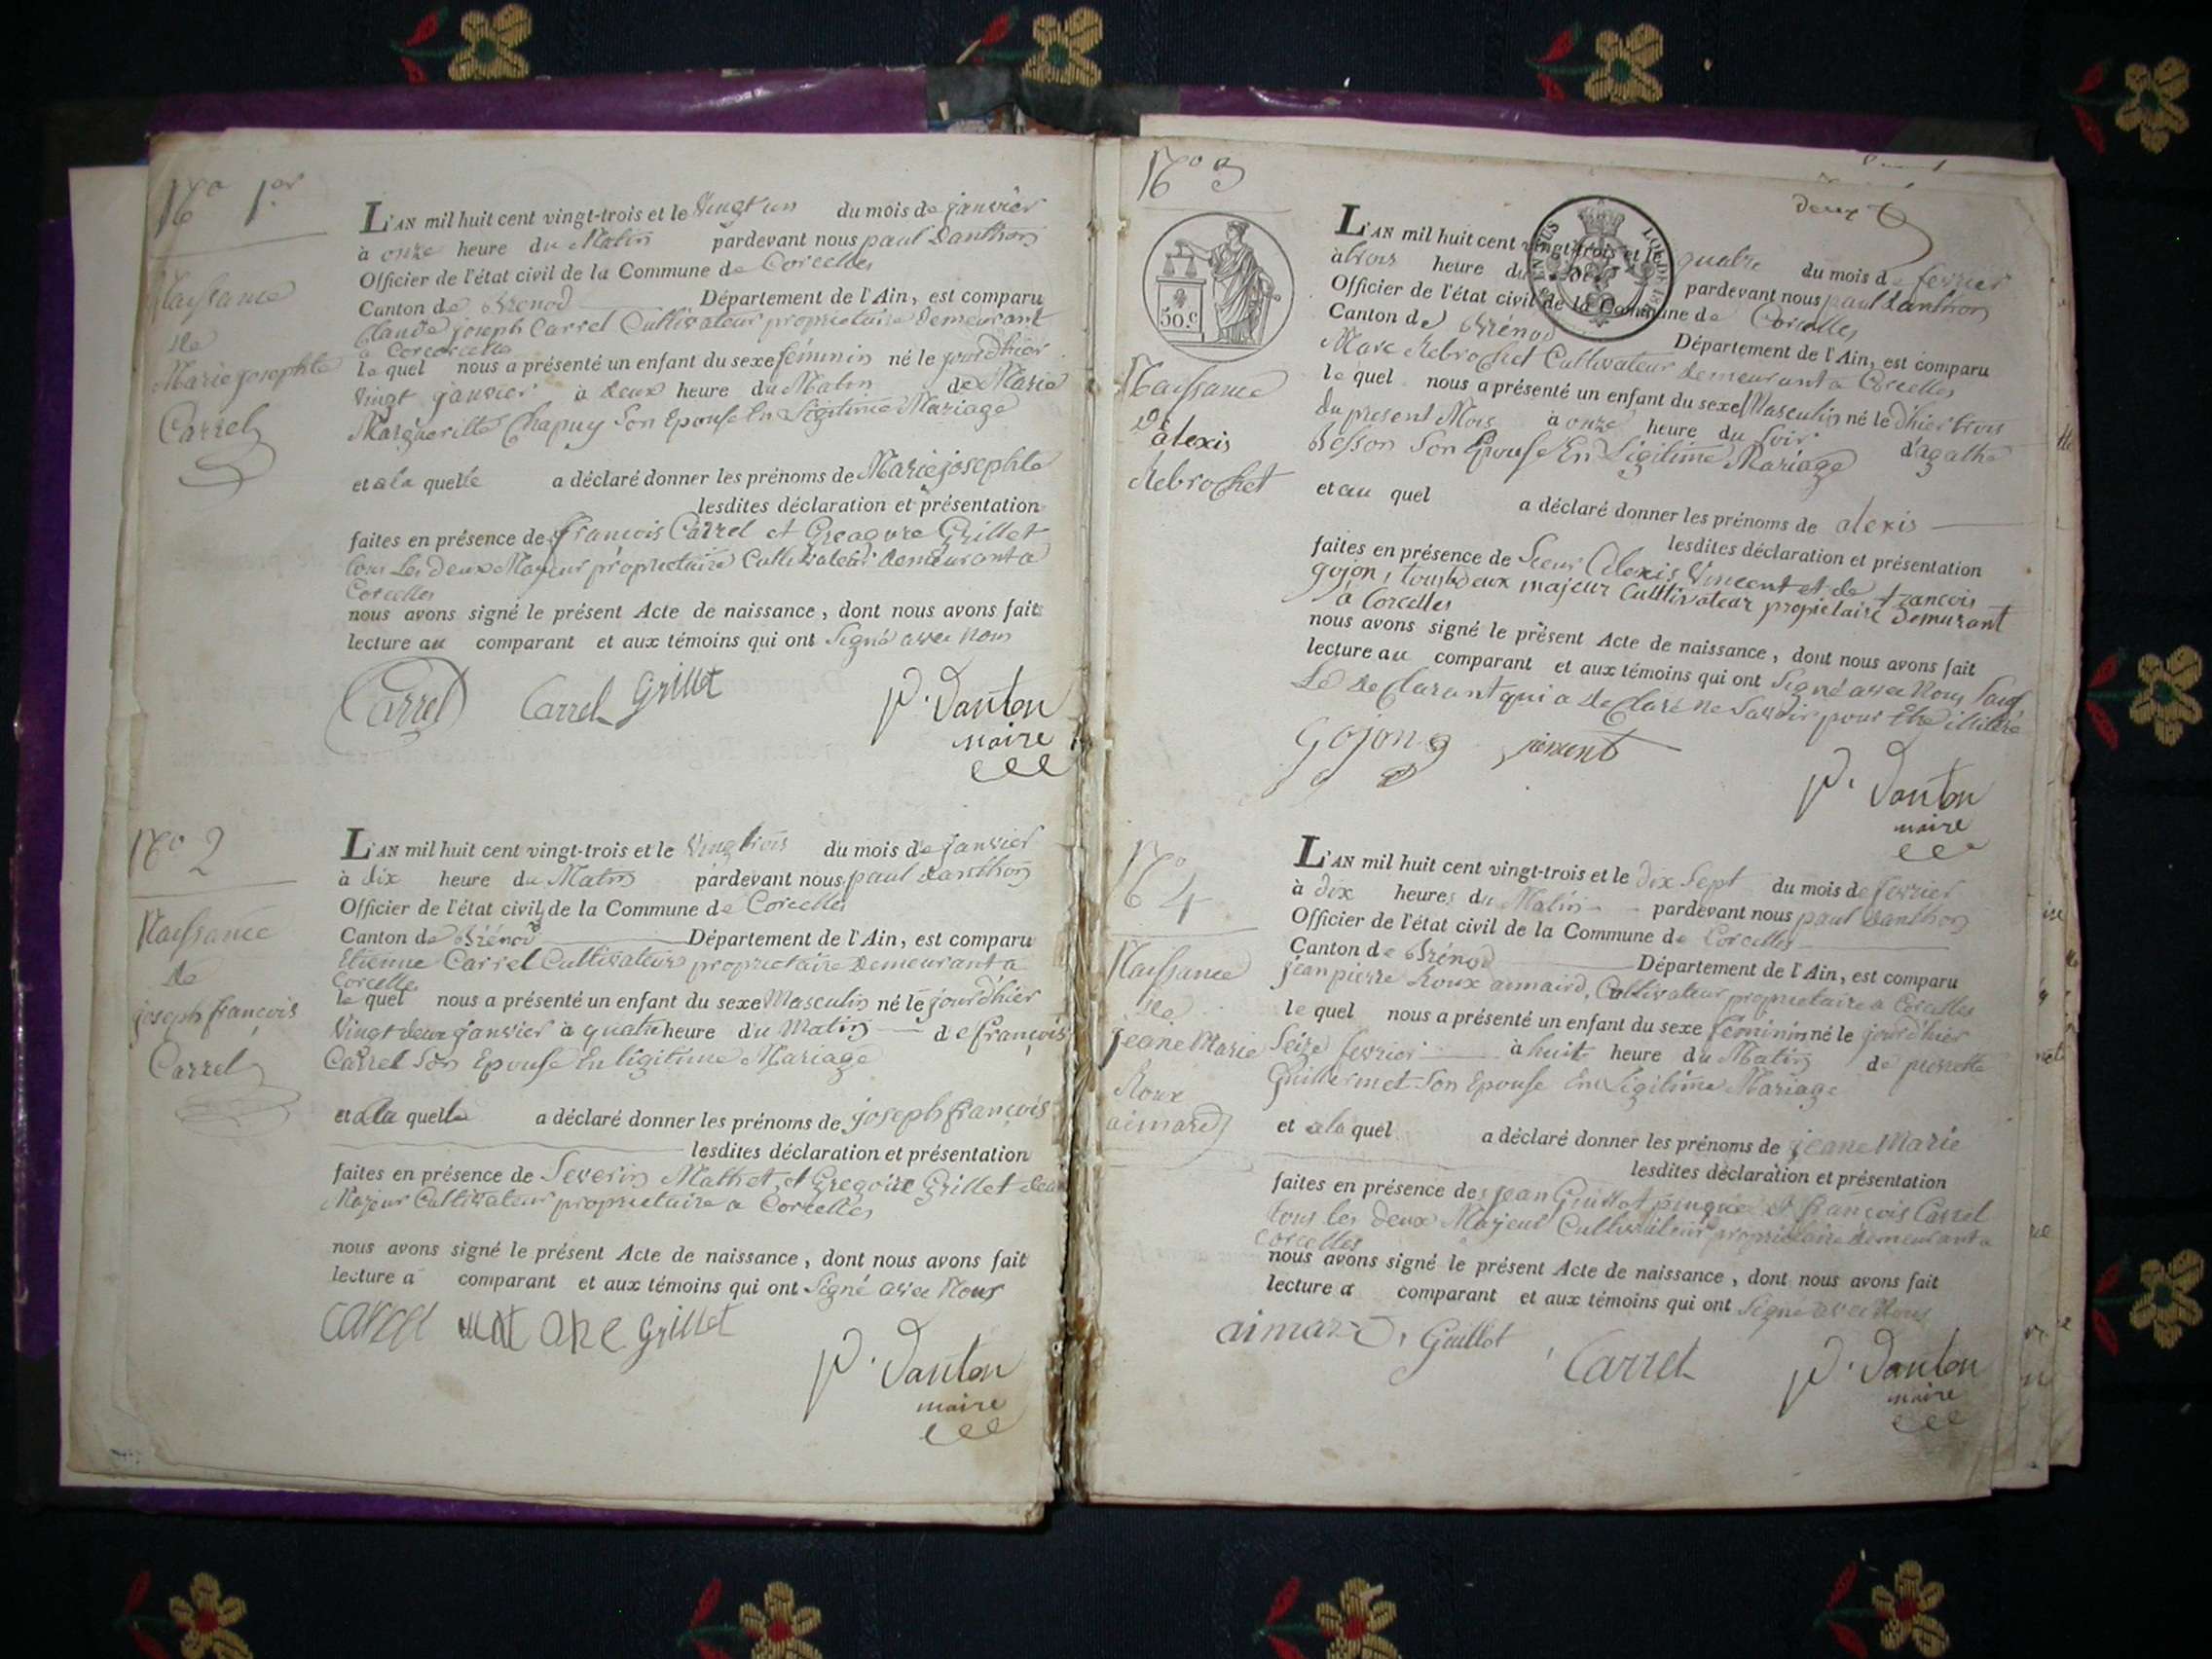 No 1er
Naissance
de
Marie josephte
Carrel
L'AN mil huit cent vingt-trois et le vingt un du mois de janvier
à onze heure du Matin pardevant nous paul Danthon
Officier de l'état civil de la Commune de Corcelles
Canton de Brénod Département de l'Ain, est comparu
Claude joseph Carrel Cultivateur proprietaire Demeurant
a Corcorcelles
le quel nous a présenté un enfant du sexe féminin né le jourdhier
vingt janvier à deux heure du Matin de Marie
Margueritte Chapuy Son Epouse En Légitime Mariage
et a la quelle a déclaré donner les prénoms de Marie josephte
lesdites déclaration et présentation
faites en présence de françois Carrel et Greagore Grillet
tous Les deux Majeur proprietaire Cultivateur demeurant a
Corcelles
nous avons signé le présent Acte de naissance, dont nous avons fait
lecture au comparant et aux témoins qui ont Signé avec Nous
Carrel Carrel Grillet P. Danton
maire
No 2
Naissance
de
joseph françois
Carrel
L'AN mil huit cent vingt-trois et le vingtrois du mois de janvier
à dix heure du Matin pardevant nous paul Danthon
Officier de l'état civil de la Commune de Corcelles
Canton de Brénod Département de l'Ain, est comparu
Etienne Carrel Cultivateur proprietaire Demeurant a
Corcelle
le quel nous a présenté un enfant du sexe Masculin né le jourdhier
Vingt deux janvier à quatre heure du Matin de françois
Carrel Son Epouse En légitime Mariage
et a la quelle a déclaré donner les prénoms de joseph françois
lesdites déclaration et présentation
faites en présence de Severin Mathet, et Gregoire Grillet
Majeur Cultivateur proprietaire a Corcelles
nous avons signé le présent Acte de naissance, dont nous avons fait
lecture a comparant et aux témoins qui ont Signé avec Nous
Carrel Grillet
P. Danton
maire
No 3
deux
50.c
Naissance
d'alexis
Rebrochet
L'AN mil huit cent vingt-trois et le quatre du mois de fevrier
à trois heure du pardevant nous paul Danthon
Officier de l'état civil de la Commune de Corcelles
Canton de Brénod Département de l'Ain, est comparu
Marc Rebrochet Cultivateur demeurant a Corcelles
le quel nous a présenté un enfant du sexe Masculin né le d'hier trois
du present Mois à onze heure du Soir d'agathe
Besson Son Epouse En Légitime Mariage
et au quel a déclaré donner les prénoms de alexis
lesdites déclaration et présentation
faites en présence de Sieur Alexis Vincent et de francois
gojon, tous deux majeur Cultivateur propietaire Demurant
à Corcelles
nous avons signé le présent Acte de naissance, dont nous avons fait
lecture au comparant et aux témoins qui ont Signé avec Nous Sauf
Le Declarant qui a declaré ne Savoir pour Etre illitéré
Gojon
P. Danton
maire
No 4
Naissance
de
jeane Marie
Roux
aimard
L'AN mil huit cent vingt-trois et le dix Sept du mois de fevrier
à dix heures du Matin pardevant nous paul Danthon
Officier de l'état civil de la Commune de Corcelles
Canton de Brénod Département de l'Ain, est comparu
jean pierre Roux aimaird, Cultivateur proprietaire a Corcelles
le quel nous a présenté un enfant du sexe féminin né le jourdhier
Seize fevrier à huit heure du Matin de pierrette
Guillermet Son Epouse En Légitime Mariage
et a la quel a déclaré donner les prénoms de jeane Marie
lesdites déclaration et présentation
faites en présence de jean Guillot et françois Carrel
tous les deux Majeur Cultivateur proprietaire demeurant a
Corcelles
nous avons signé le présent Acte de naissance, dont nous avons fait
lecture a comparant et aux témoins qui ont Signé avec Nous
aimard, Guillot, Carrel P. Danton
maire